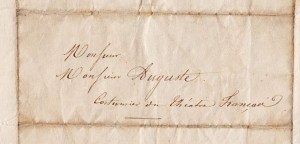 Monsieur
Monsieur Auguste.
Costumier du théâtre Français